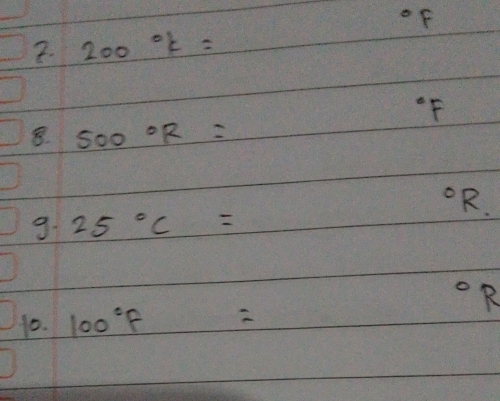 7. 200 °k = °F
8. 500 °R = °F
9. 25 °C = °R.
10. 100 °F = °R